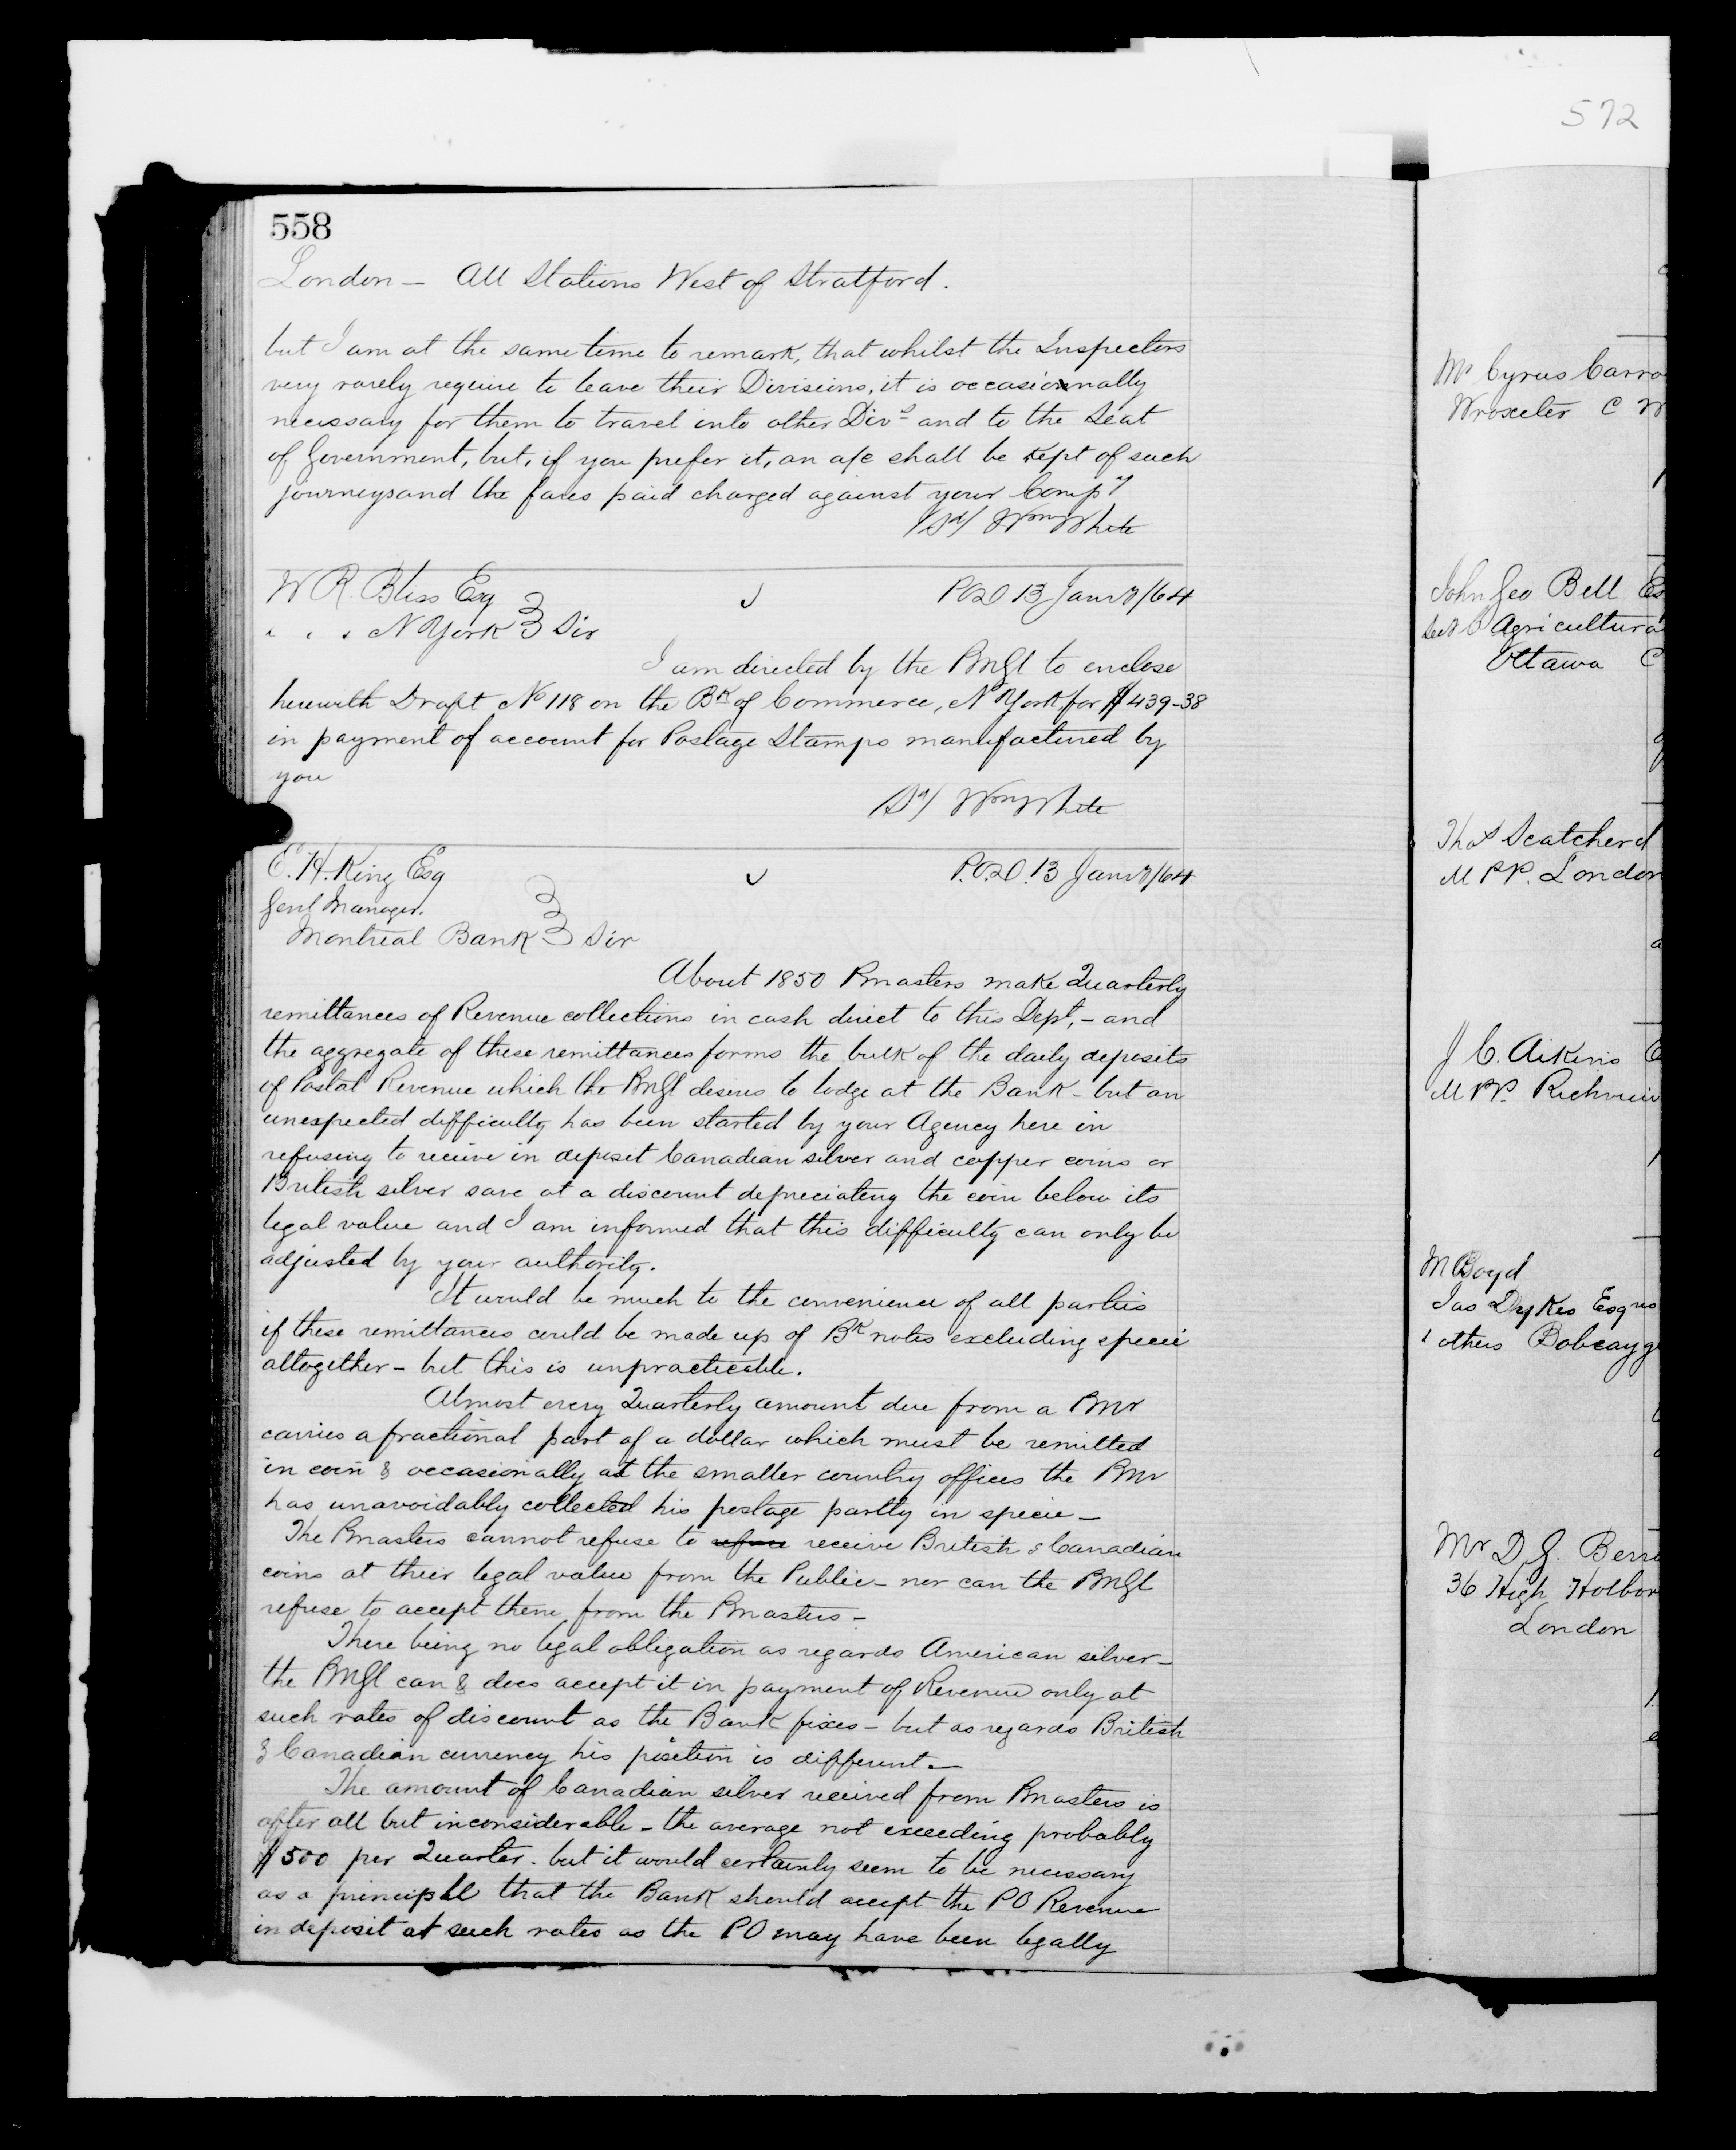 572
558
London — All Stations West of Stratford.
but I am at the same time to remark, that whilst the Inspectors
very rarely require to leave their Divisions, it is occasionally
necessary for them to travel into other Divs and to the Seat
of Government, but, if you prefer it, an a/c shall be kept of such
journeys and the fares paid charged against your Compy
/Sd/ Wm White
W R. Bliss Esq
" " " N York } Sir
POD 13 Janry/64
I am directed by the PMGl to enclose
herewith Draft No 118 on the Bk of Commerce, N York for $439-38
in payment of account for Postage Stamps manufactured by
you
/Sd/ Wm White
E. H. King Esq
P.O.D. 13 Janry/64
Genl Manager.
Montreal Bank } Sir
About 1850 Pmasters make Quarterly
remittances of Revenue collections in cash direct to this Dept, - and
the aggregate of these remittances forms the bulk of the daily deposits
of Postal Revenue which the PMGl desires to lodge at the Bank - but an
unexpected difficulty has been started by your Agency here in
refusing to receive in deposit Canadian silver and copper coins or
British silver save at a discount depreciating the coin below its
legal value and I am informed that this difficulty can only be
adjusted by your authority.
It would be much to the convenience of all parties
if these remittances could be made up of Bk notes excluding specie
altogether - but this is unpracticable.
Almost every Quarterly amount due from a PMr
carries a fractional part of a dollar which must be remitted
in coin & occasionally at the smaller country offices the PMr
has unavoidably collected his postage partly in specie -
The Pmasters cannot refuse to refuse receive British & Canadian
coins at their legal value from the Public - nor can the PMGl
refuse to accept them from the Pmasters -
There being no legal obligation as regards American silver -
the PMGl can & does accept it in payment of Revenue only at
such rates of discount as the Bank fixes - but as regards British
& Canadian currency his position is different. -
The amount of Canadian silver received from Pmasters is
after all but inconsiderable - the average not exceeding probably
$500 per Quarter - but it would certainly seem to be necessary
as a principle that the Bank should accept the PO Revenue
in deposit at such rates as the PO may have been legally
Mr Cyrus Carro
Wroxeter C W
John Geo Bell Es
Agricultura
Ottawa C
Thos Scatcherd
M PP. London
J. C. Aikins E
M PP. Richvie
M Boyd
Jas Dykes Esqres
& others Bobcayge
Mr D. G. Berri
36 High Holbor
London